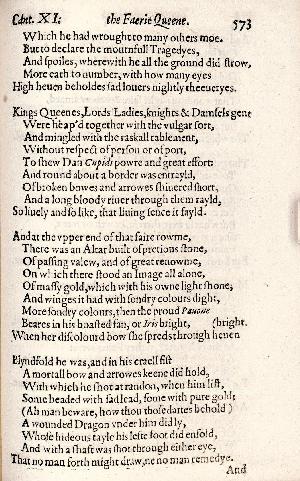 Cant. XI. the Faerie Queene. 573
Which he had wrought to many others moe.
But to declare the mournfull Tragedyes,
And spoiles, wherewith he all the ground did strow,
More eath to number, with how many eyes
High heuen beholdes sad louers nightly theeueryes.
Kings Queenes, Lords Ladies, knights & Damsels gent
Were heap'd together with the vulgar sort,
And mingled with the raskall rablement,
Without respect of person or of port,
To shew Dan Cupids powre and great effort:
And round about a border was entrayld,
Of broken bowes and arrowes shiuered short,
And a long bloody riuer through them rayld,
So liuely and so like, that liuing sence it fayld.
And at the vpper end of that faire rowme,
There was an Altar built of pretious stone,
Of passing valew, and of great renowme,
On which there stood an Image all alone,
Of massy gold, which with his owne light shone;
And winges it had with sondry colours dight,
More sondry colours, then the proud Pauone
Beares in his boasted fan, or Iris bright, (bright.
When her discolourd bow she spreds through heuen
Blyndfold he was, and in his cruell fist
A mortall bow and arrowes keene did hold,
With which he shot at randon, when him list,
Some headed with sad lead, some with pure gold;
(Ah man beware, how thou those dartes behold)
A wounded Dragon vnder him did ly,
Whose hideous tayle his lefte foot did enfold,
And with a shaft was shot through either eye,
That no man forth might draw, ne no man remedye.
And